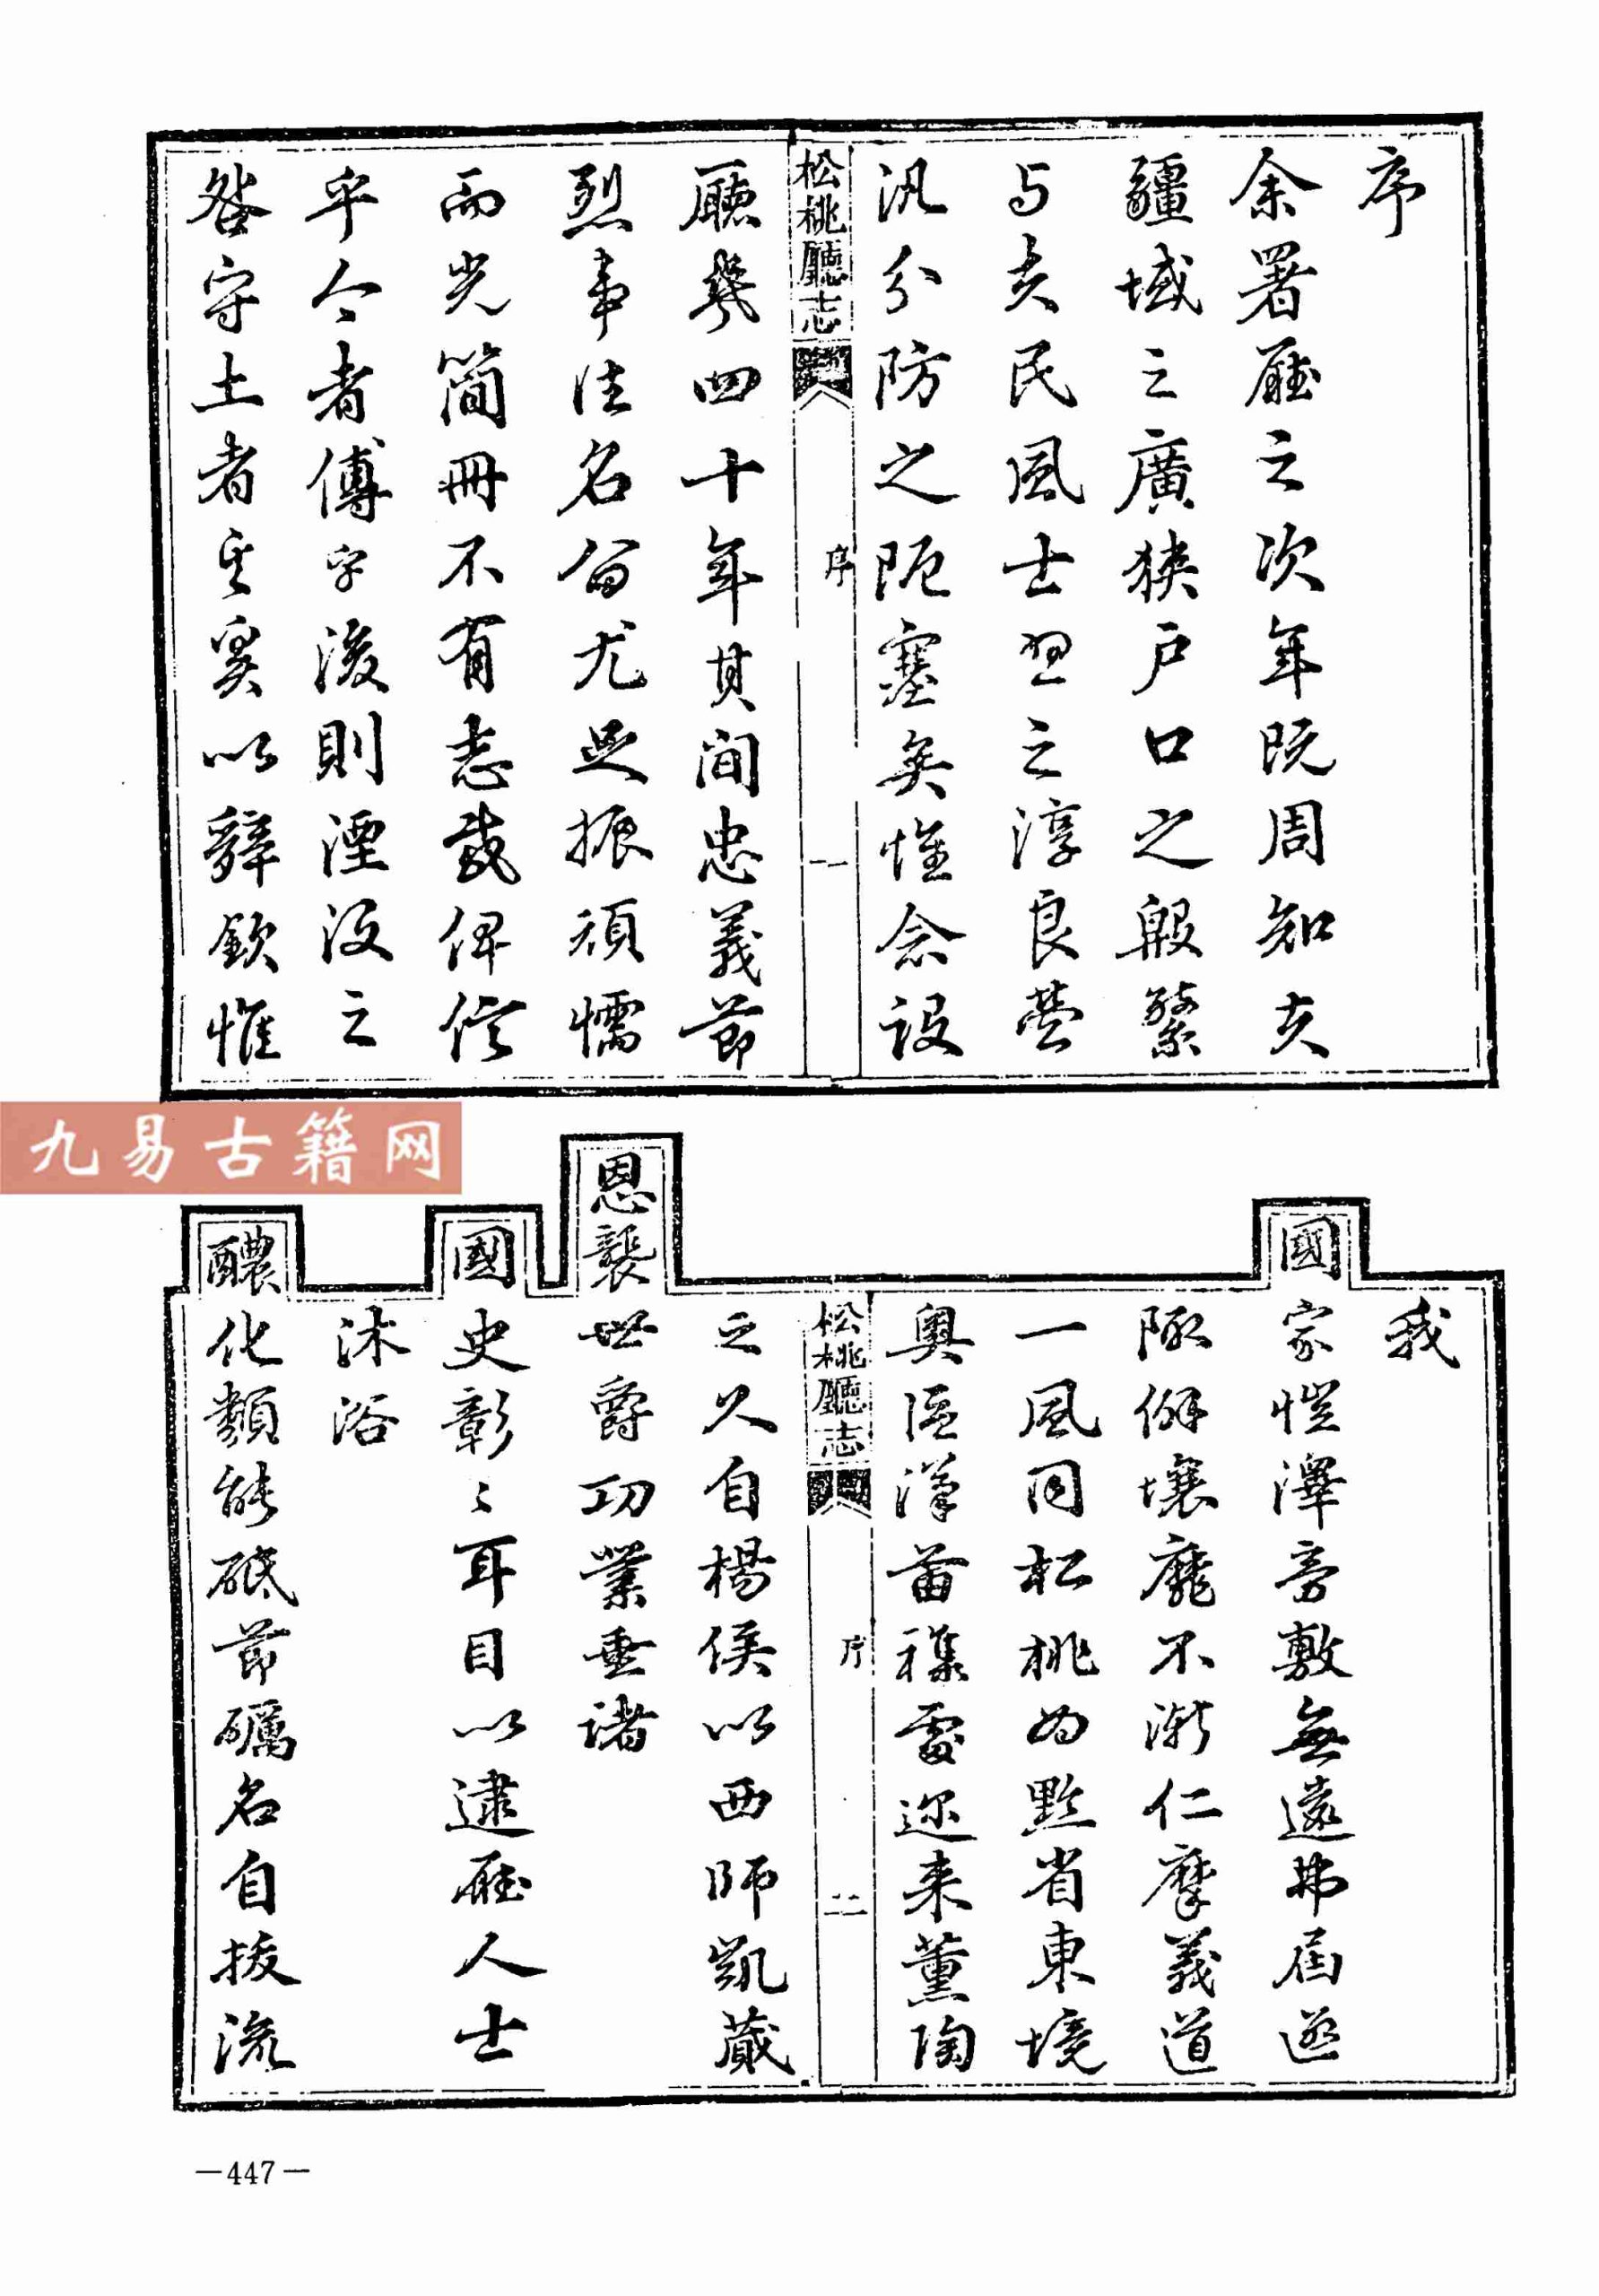 序
余署廳之次年既周知夫
疆域之廣狹戶口之殷繁
与夫民風士習之淳良營
汛分防之阨塞矣惟念設
松桃廳志
序
一
廳幾四十年其间忠義節
烈事佳名留尤足振頑懦
而光簡冊不有志載俾信
乎今者傳乎後則湮沒之
咎守土者其奚以辭欽惟
九易古籍网
我
國家愷澤旁敷無遠弗屆遐
陬僻壤靡不漸仁摩義道
一風同松桃為黔省東境
奧區漢苗襍處邇来薰陶
松桃廳志
序
二
之久自楊侯以西師凱蕆
恩襲世爵功業垂諸
國史彰〻耳目以逮廳人士
沐浴
醲化類能砥節礪名自拔流
—447—